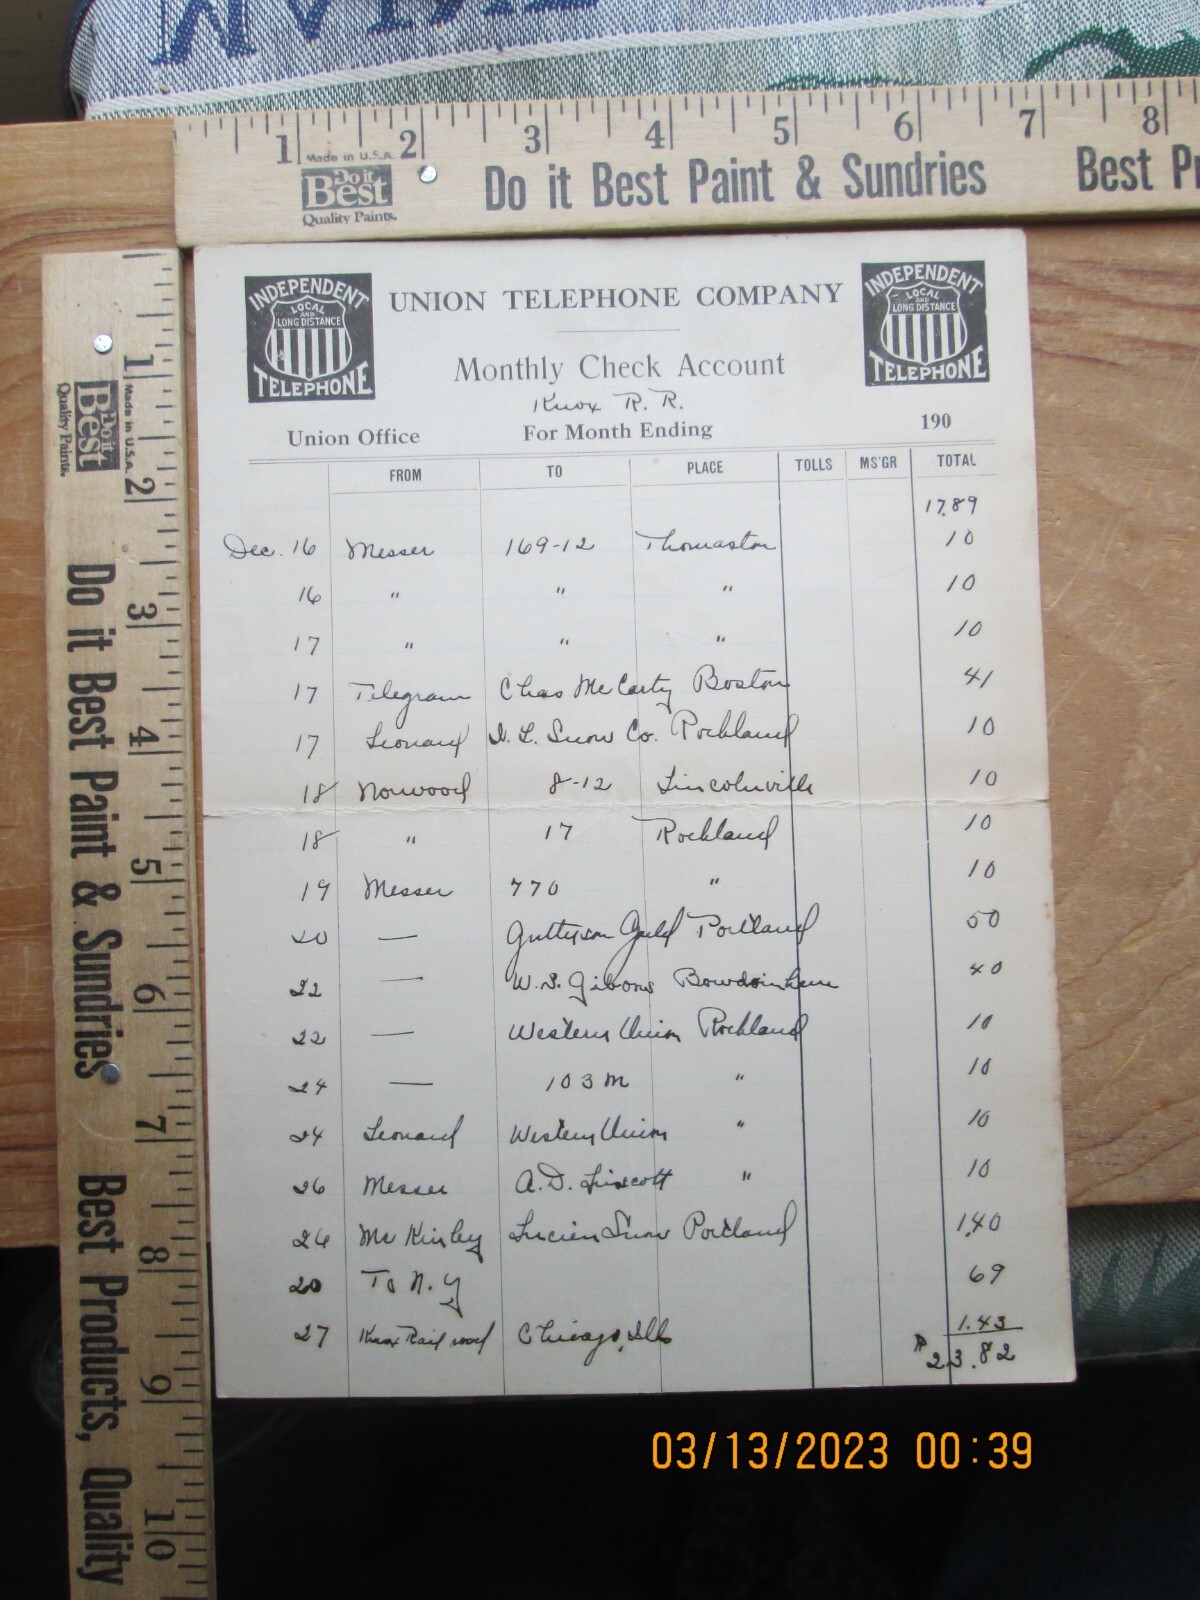 1 2 3 4 5 6 7 8
Made in U.S.A.
Do it Best Quality Paints.
Do it Best Paint & Sundries Best Pr
1 2 3 4 5 6 7 8 9 10
Made in U.S.A.
Do it Best Quality Paints.
Do it Best Paint & Sundries Best Products, Quality
INDEPENDENT LOCAL AND LONG DISTANCE TELEPHONE
UNION TELEPHONE COMPANY
INDEPENDENT LOCAL AND LONG DISTANCE TELEPHONE
Monthly Check Account
Knox R. R.
Union Office For Month Ending 190
FROM TO PLACE TOLLS MS'GR TOTAL
17.89
Dec. 16 Messer 169-12 Thomaston 10
16 " " " 10
17 " " " 10
17 Telegram Chas McCarty Boston 41
17 Leonard I. L. Snow Co. Rockland 10
18 Norwood 8-12 Lincolnville 10
18 " 17 Rockland 10
19 Messer 770 " 10
20 — Portland 50
22 — W. S. Gibons 40
22 — Western Union Rockland 10
24 — 103 M " 10
24 Leonard Western Union " 10
26 Messer A. D. " 10
26 McKinley Lucien Snow Portland 1.40
20 To N. Y 69
27 Knox Railroad Chicago, Ills 1.43
$ 23.82
03/13/2023 00:39